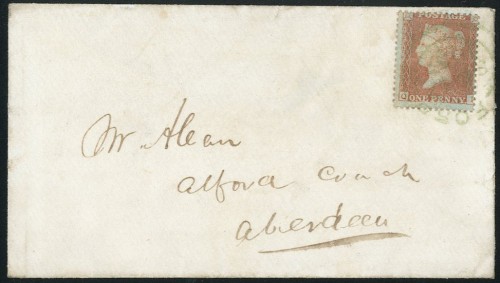 POSTAGE
ONE PENNY
Mr. Alean
Alford Coach
Aberdeen